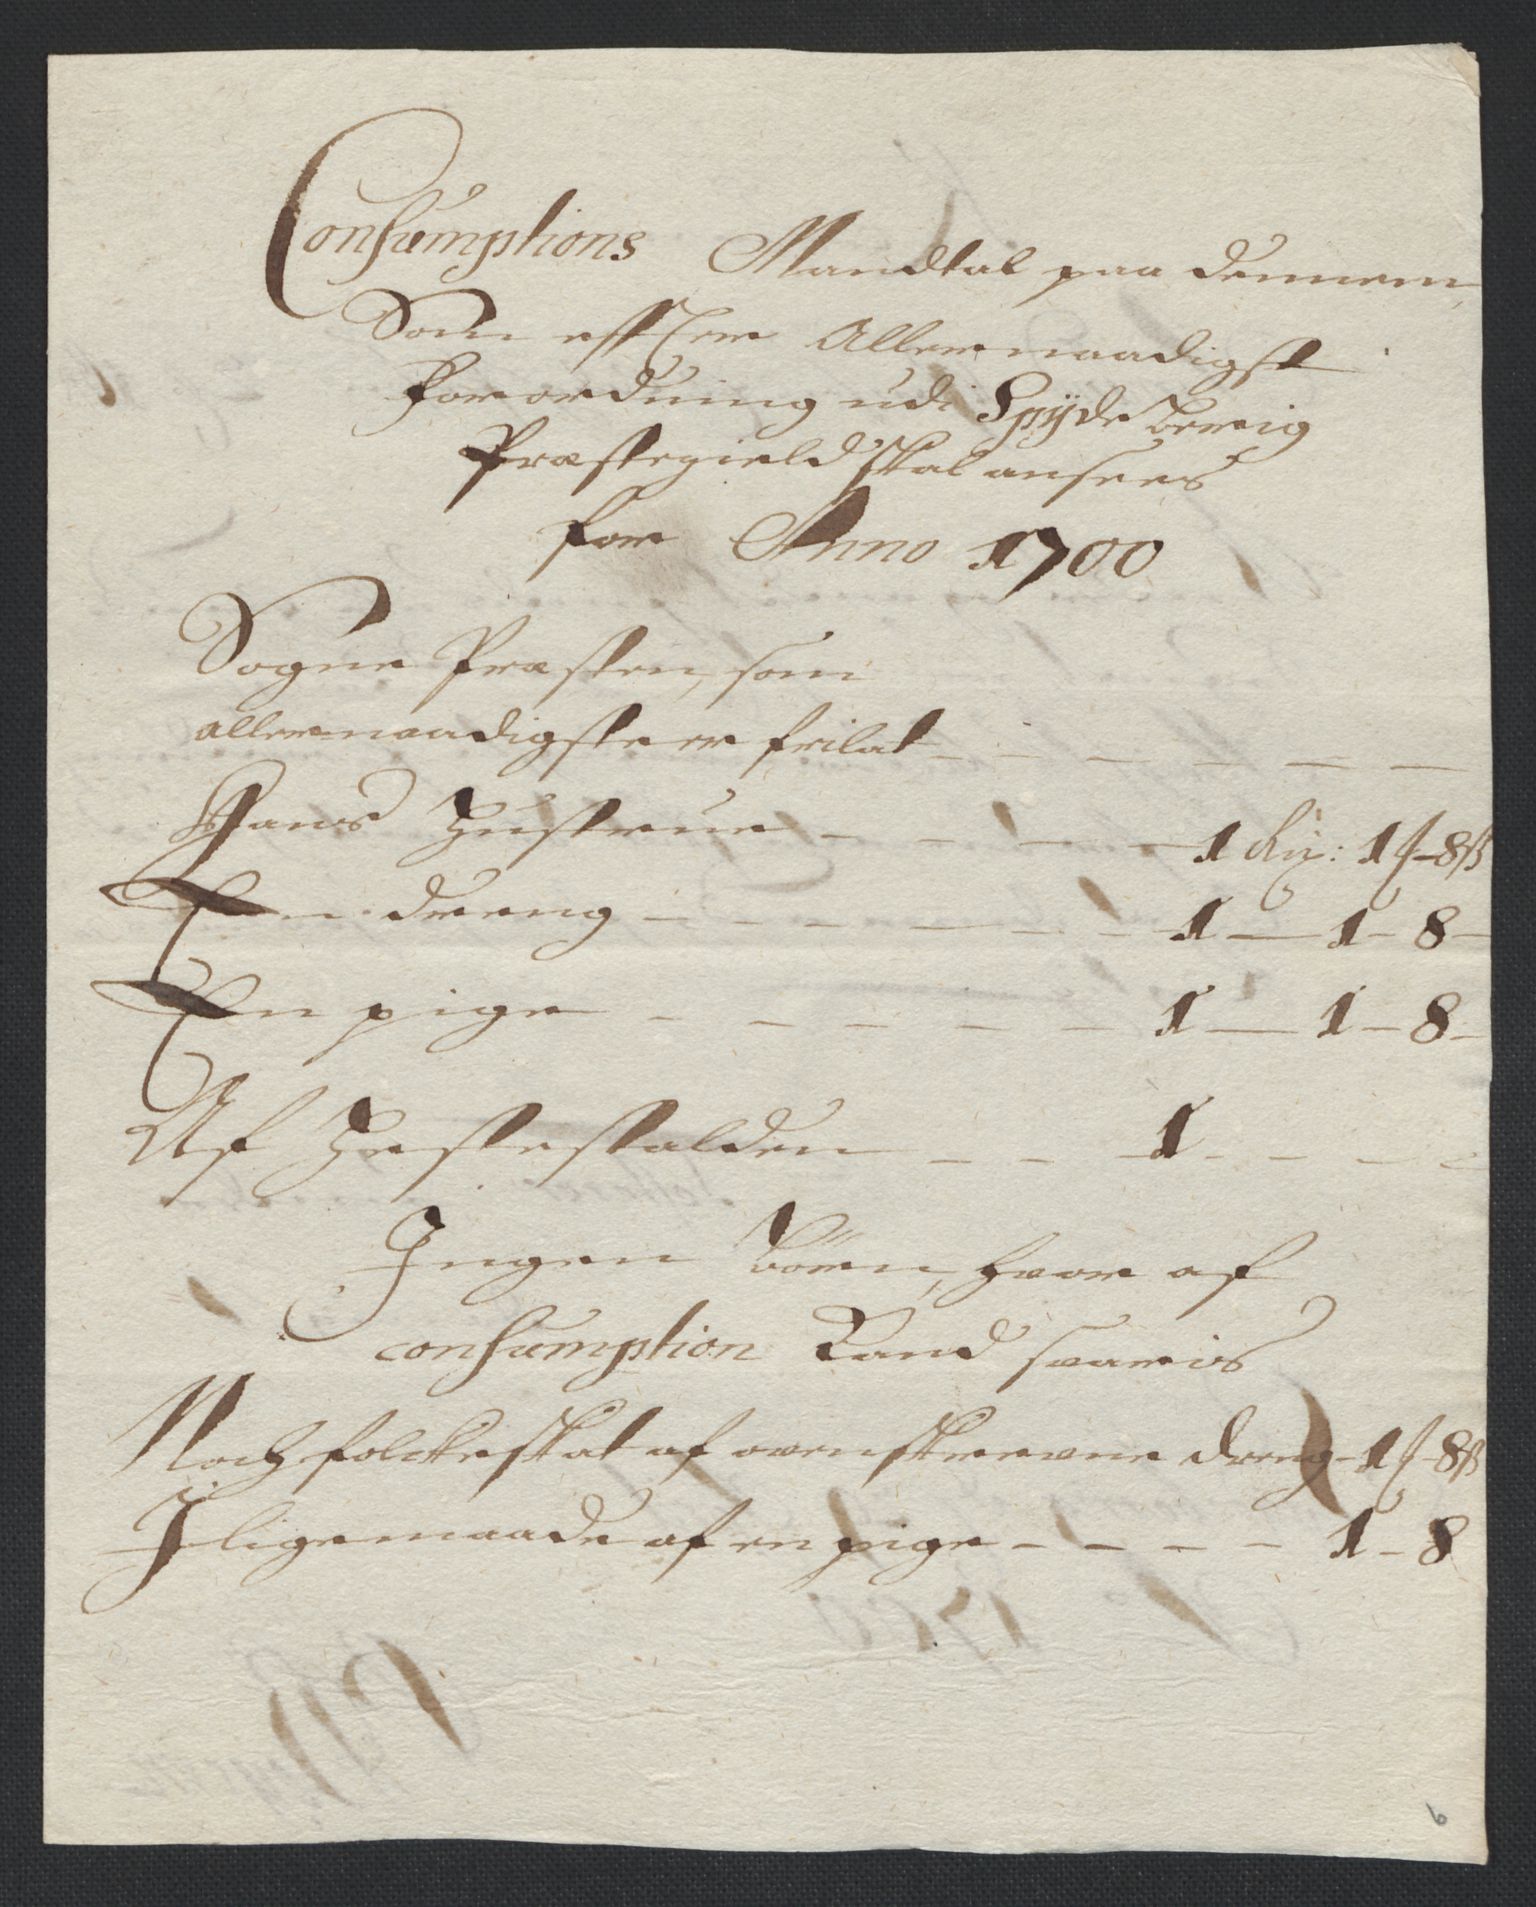 Consumptions Mandtal paa dennem,
Som effter Allernaadigst
forordning udi Spydeberig
Præstegield skal ansees
for Anno 1700
Sogne Præsten, som
allernaadigste er frilat - - - - - -
Hans Hustrue - - - - 1 Rix: 1 ʃ - 8 ß
En dreng - - - - - - 1 — 1 - 8 -
En pige - - - - - 1 — 1 - 8 -
Af Hestestalden - - - 1 - - - -
Ingen børn, hvor af
consumption Kand svaris
Noch folckeskat af ovenskrevne dreng - 1 ʃ - 8 ß
Jligemaade af en pige - - - - 1 - 8
6